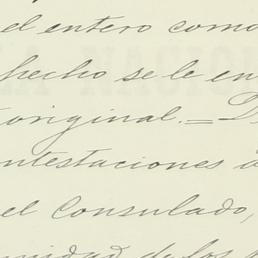 el entero como
hecho se le en
original.= D
ntestaciones a
el Consulado,
unidad de los